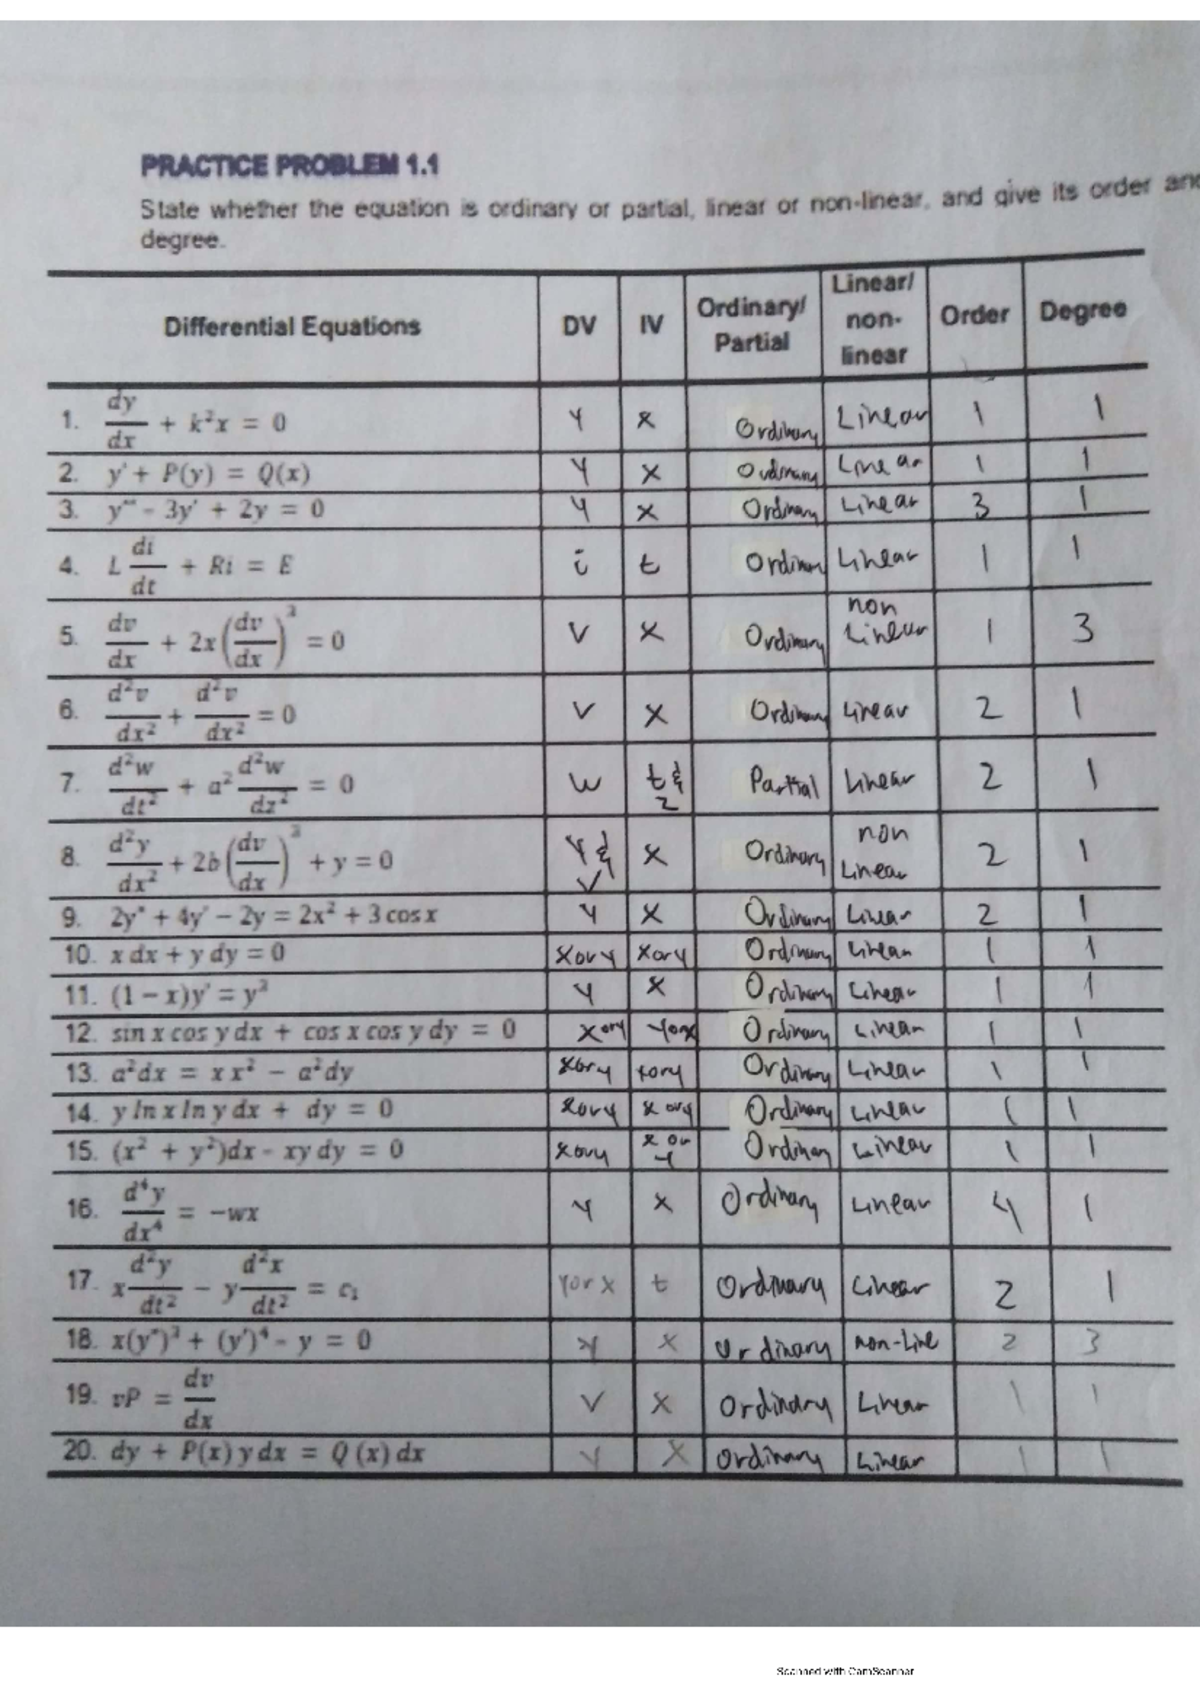 PRACTICE PROBLEM 1.1
State whether the equation is ordinary or partial, linear or non-linear, and give its order and
degree.
Differential Equations DV IV Ordinary/ Partial Linear/ non- linear Order Degree
1. dy/dx + k²x = 0 y x Ordinary Linear 1 1
2. y' + P(y) = Q(x) y x Ordinary Linear 1 1
3. y''' - 3y' + 2y = 0 y x Ordinary Linear 3 1
4. L di/dt + Ri = E i t Ordinary Linear 1 1
5. dv/dx + 2x(dv/dx)³ = 0 v x Ordinary non Linear 1 3
6. d²v/dx² + d²v/dx² = 0 v x Ordinary Linear 2 1
7. d²w/dt² + a² d²w/dz² = 0 w t & z Partial Linear 2 1
8. d²y/dx² + 2b(dv/dx)³ + y = 0 y & v x Ordinary non Linear 2 1
9. 2y'' + 4y' - 2y = 2x² + 3 cos x y x Ordinary Linear 2 1
10. x dx + y dy = 0 x or y x or y Ordinary Linear 1 1
11. (1 - x)y' = y² y x Ordinary Linear 1 1
12. sin x cos y dx + cos x cos y dy = 0 x or y y or x Ordinary Linear 1 1
13. a²dx = x x² - a²dy x or y x or y Ordinary Linear 1 1
14. y ln x ln y dx + dy = 0 x or y x or y Ordinary Linear 1 1
15. (x² + y²)dx - xy dy = 0 x or y x or y Ordinary Linear 1 1
16. d⁴y/dx⁴ = -wx y x Ordinary Linear 4 1
17. x d²y/dt² - y d²x/dt² = c₁ y or x t Ordinary Linear 2 1
18. x(y'')³ + (y')⁴ - y = 0 y x Ordinary non-Line 2 3
19. vP = dv/dx v x Ordinary Linear 1 1
20. dy + P(x) y dx = Q (x) dx y x Ordinary Linear 1 1
Scanned with CamScanner